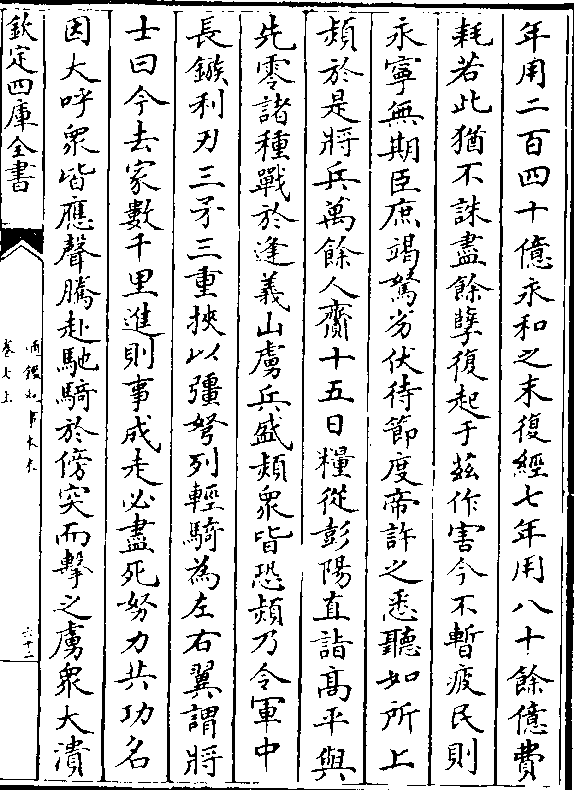 年用二百四十億永和之末復經七年用八十餘億費
耗若此猶不誅盡餘孽復起于兹作害今不暫疲民則
永寧無期臣庶竭駑劣伏待節度帝許之悉聽如所上
熲於是將兵萬餘人齎十五日糧從彭陽直詣髙平與
先零諸種戰於逢義山虜兵盛熲衆皆恐熲乃令軍中
長鏃利刃三矛三重挾以彊弩列輕騎為左右翼謂將
士曰今去家數千里進則事成走必盡死努力共功名
因大呼衆皆應聲騰赴馳騎於傍突而擊之虜衆大潰
欽定四庫全書
通鑑紀事本末
卷七上
六十二